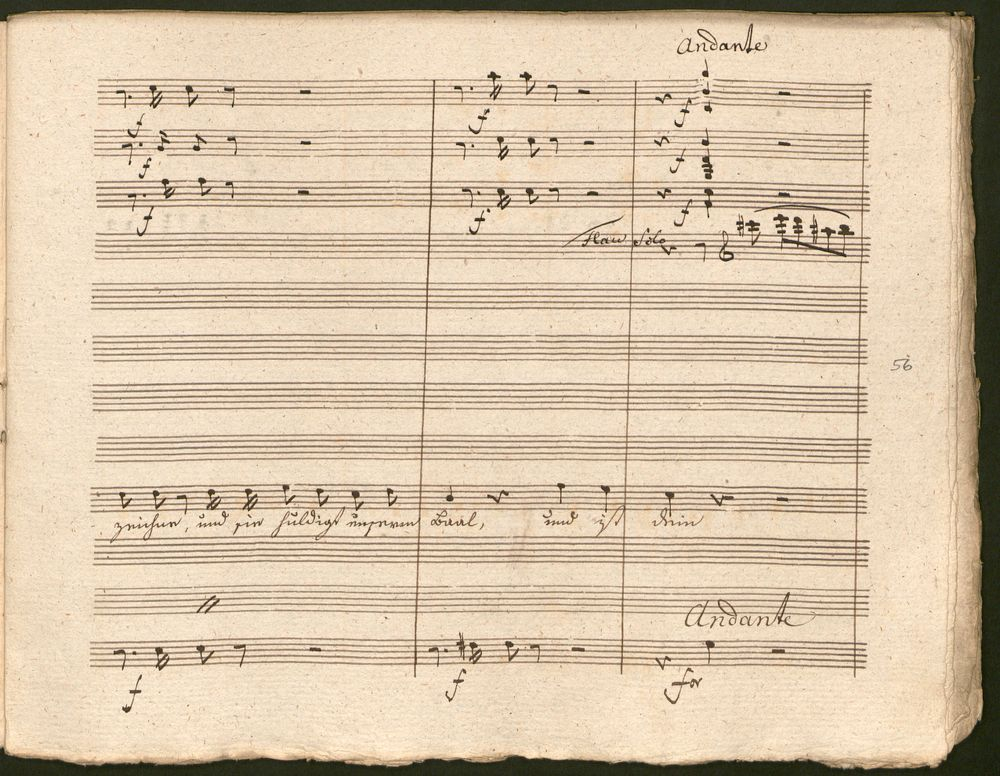 Andante
f f f
f f
f f f
Flau Solo
56
zeichne, und sie huldigt unserm Baal, und ist dein
Andante
f f for